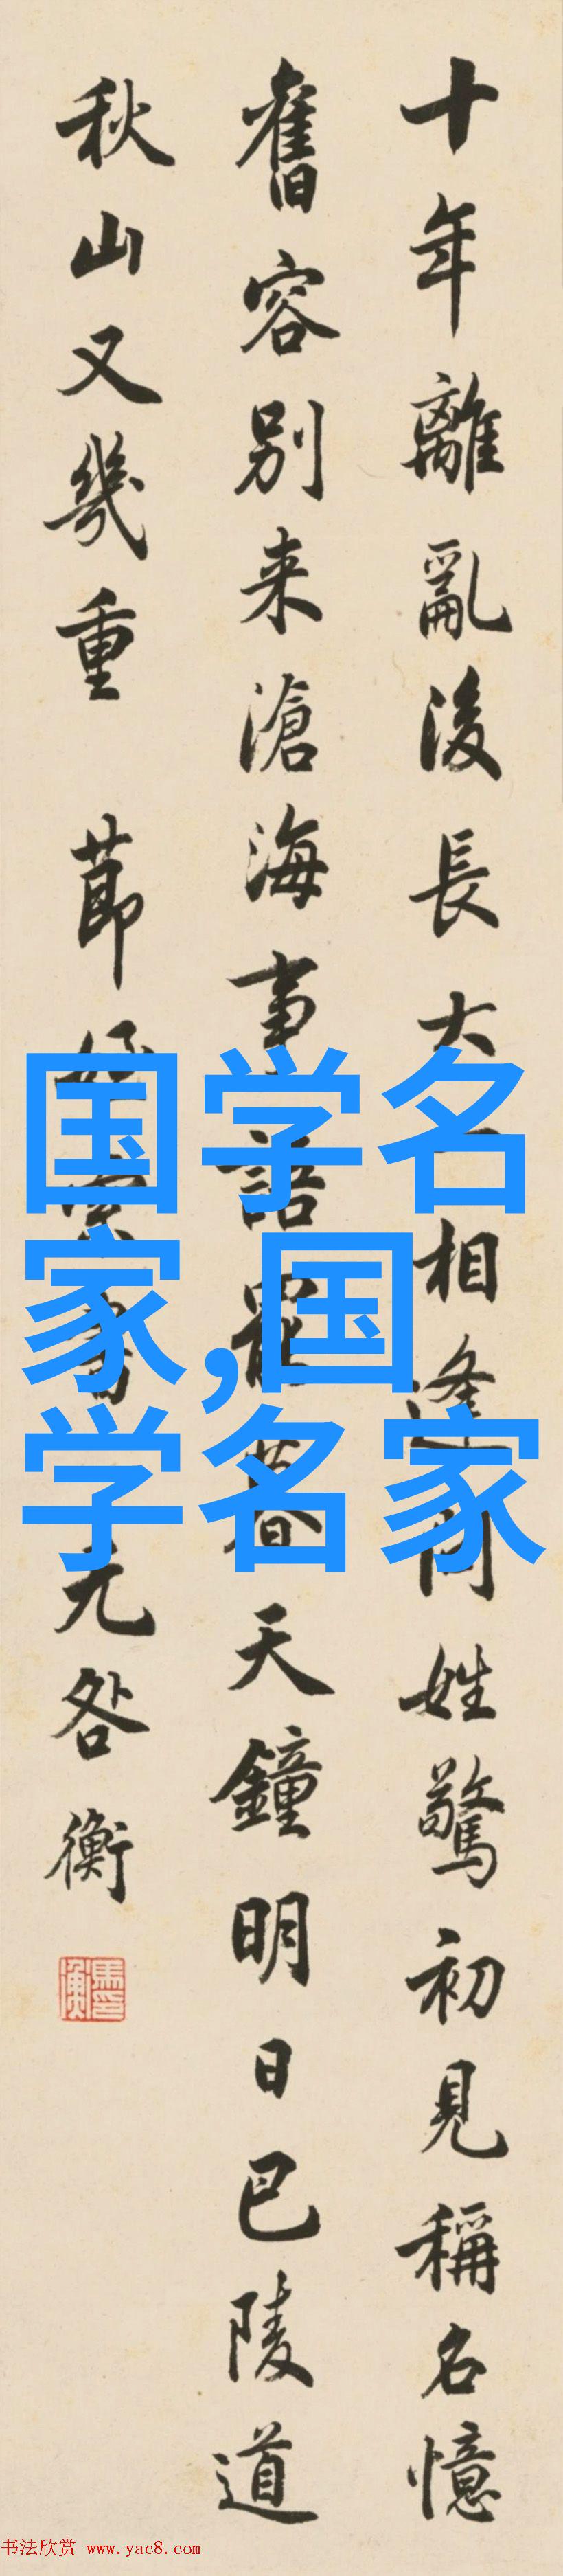 十年離亂後長大一相逢問姓驚初見稱名憶
舊容別来滄海事語罷暮天鐘明日巴陵道
秋山又幾重 節 无咎衡
馬衡印
国学名
家,国
学名家
书法欣赏 www.yac8.com